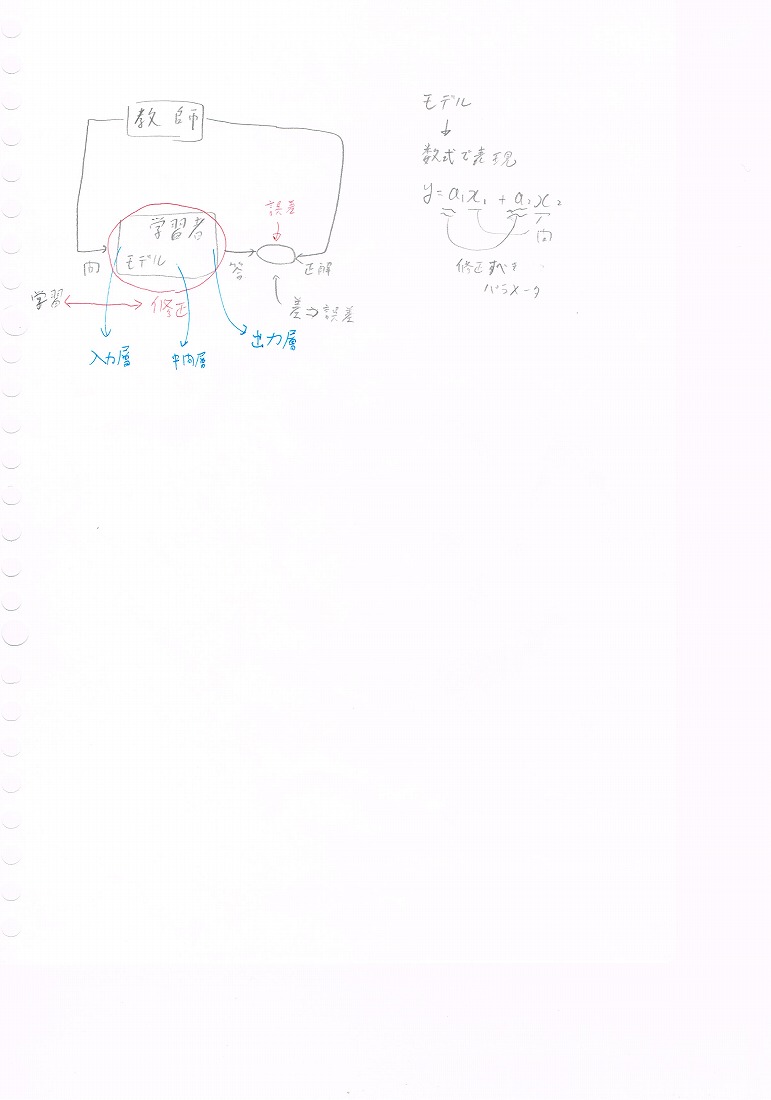 教師
誤差
学習者
モデル
問
答
正解
学習
修正
差⇒誤差
入力層
中間層
出力層
モデル
↓
数式で表現
y=a₁x₁+a₂x₂
問
修正すべき
パラメータ